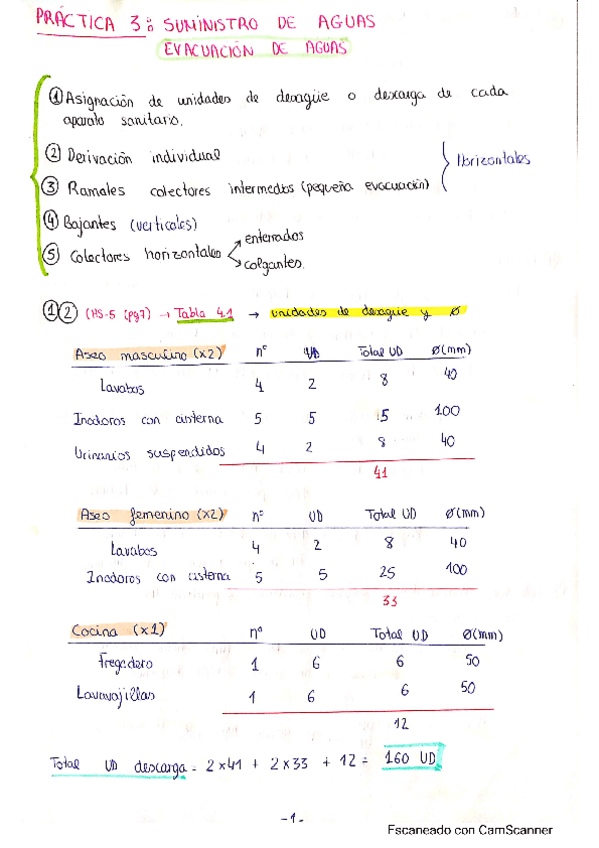 PRÁCTICA 3: SUMINISTRO DE AGUAS
EVACUACIÓN DE AGUAS
① Asignación de unidades de desagüe o descarga de cada
aparato sanitario.
② Derivación individual
③ Ramales colectores intermedios (pequeña evacuación)
Horizontales
④ Bajantes (verticales)
⑤ Colectores horizontales
enterrados
colgantes.
①② (HS-5 (pg7) → Tabla 4.1 → unidades de desagüe y Ø
Aseo masculino (x2) nº UD Total UD Ø(mm)
Lavabos 4 2 8 40
Inodoros con cisterna 5 5 5 100
Urinarios suspendidos 4 2 8 40
41
Aseo femenino (x2) nº UD Total UD Ø(mm)
Lavabos 4 2 8 40
Inodoros con cisterna 5 5 25 100
33
Cocina (x1) nº UD Total UD Ø(mm)
Fregadero 1 6 6 50
Lavavajillas 1 6 6 50
12
Total UD descarga = 2x41 + 2x33 + 12 = 160 UD
-1-
Escaneado con CamScanner